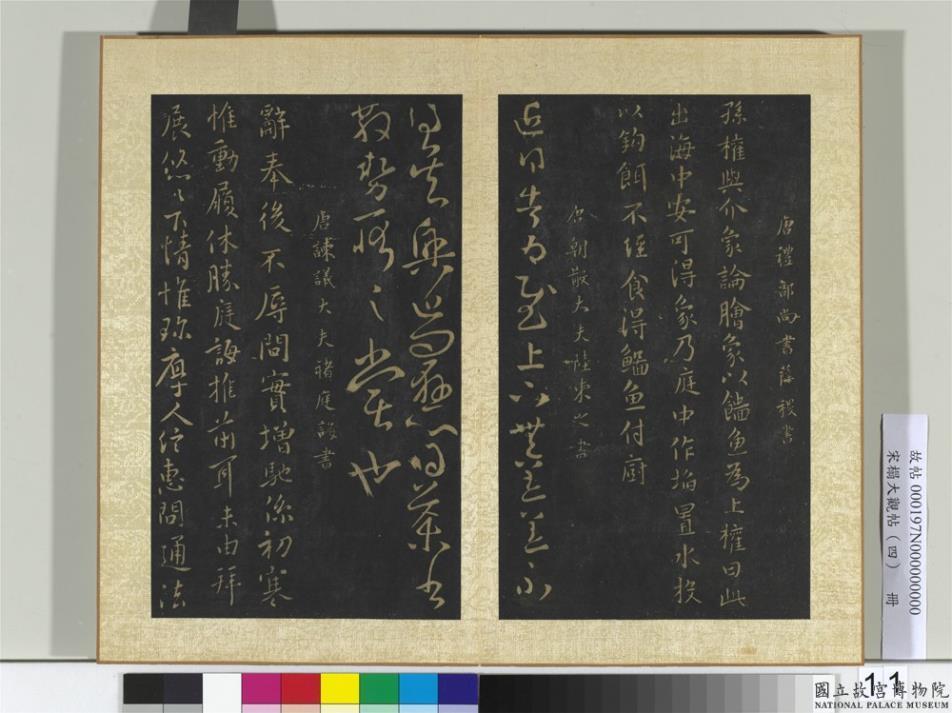 唐禮部尚書薛稷書
孫權與介象論膾象以鯔魚為上權曰此
出海中安可得象乃庭中作埳置水投
以鈎餌不經食得鯔魚付廚
唐朝散大夫陸柬之書
近得告為慰上下無恙不
得吳興近問懸心得
之常也
唐諫議大夫褚庭誨書
辭奉後不辱問實增馳係初寒
惟動履休勝庭誨推前耳未由拜
展悠〻下情惟珍厚人使惠問通法
故帖000197N000000000
宋榻大觀帖(四) 冊
11
國立故宮博物院
NATIONAL PALACE MUSEUM